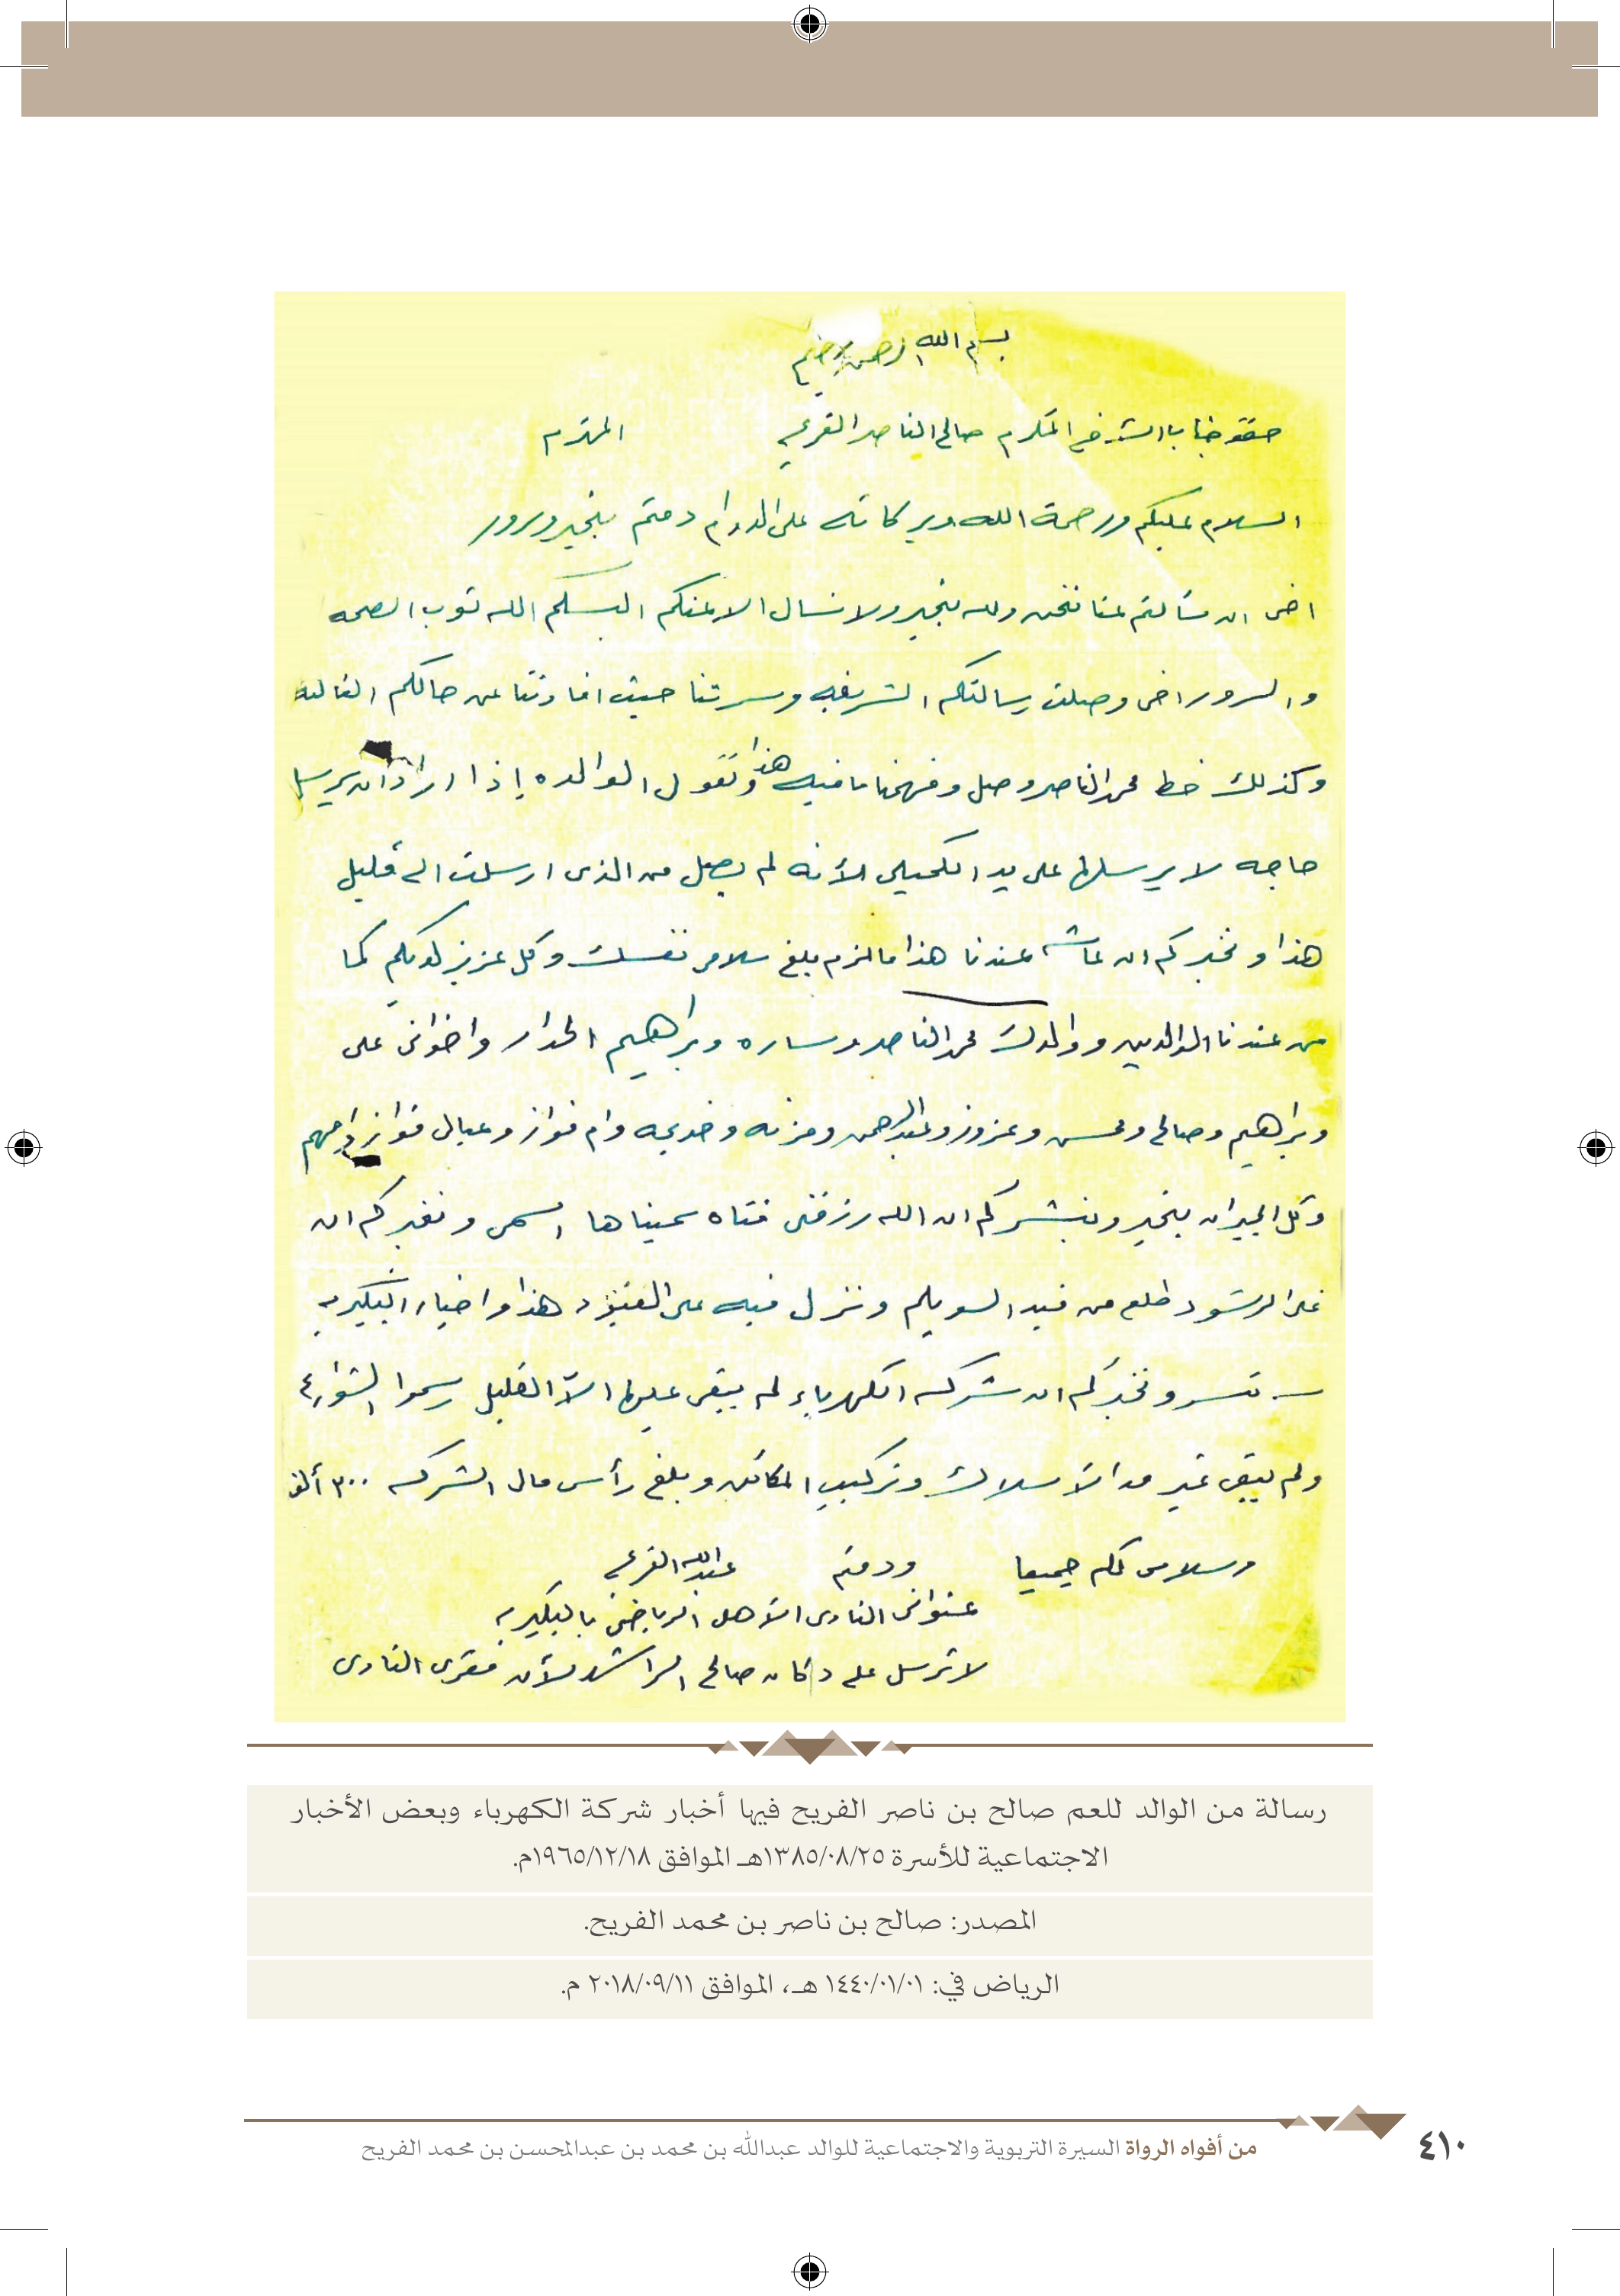 بسم الله الرحمن الرحيم
المكرم صالح الناصر الفريح المحترم
السلام عليكم ورحمة الله وبركاته على الدوام دمتم بخير وسرور
اخى ان سألتم عنا نحن ولله بخير ولا نسال الا عنكم البسكم الله ثوب الصحه
والسرور اخى وصلت رسالتكم الشريفه وسرتنا حيث افادتنا عن حالكم الغاليه
وكذلك خط محمد الناصر وصل وفهمنا ما فيه هذا وتقول الوالده إذا اراد ان يرسل
حاجه لا يرسلها على يد لأنه لم يصل من الذى ارسلت الى قليل
هذا ونخبركم ان عندنا هذا مالزم بلغ سلامى نفسك وكل عزيز لديكم كما
من عندنا الوالدين ووالدك محمد الناصر وساره وبراهيم واخوانى على
وبراهيم وصالح ومحسن وعزوز وعبدالرحمن ومزنه وخديجه وام فواز وعيال فواز وامهم
وكل الجيران بخير ونبشركم ان الله رزقنى فتاه سميناها ونخبركم ان
على الرشود طلع من السويلم ونزل فيه على هذا واخبار البكيريه
تسر ونخبركم ان شركه الكهرباء لم يبقى عليها الاّ القليل رسموا الشوارع
ولم يبقى غير مد الأسلاك وتركيب المكائن وبلغ رأس مال الشركه ٣٠٠ ألف
وسلامى لكم جميعا ودمتم عبدالله الفريح
عنوانى النادى الأهلى الرياضى بالبكيريه
لا ترسل على دكان صالح الراشد لأن مقرى النادى
رسالة من الوالد للعم صالح بن ناصر الفريح فيها أخبار شركة الكهرباء وبعض الأخبار
الاجتماعية للأسرة ١٣٨٥/٠٨/٢٥هـ الموافق ١٩٦٥/١٢/١٨م.
المصدر: صالح بن ناصر بن محمد الفريح.
الرياض في: ١٤٤٠/٠١/٠١ هـ، الموافق ٢٠١٨/٠٩/١١ م.
من أفواه الرواة السيرة التربوية والاجتماعية للوالد عبدالله بن محمد بن عبدالمحسن بن محمد الفريح
٤١٠